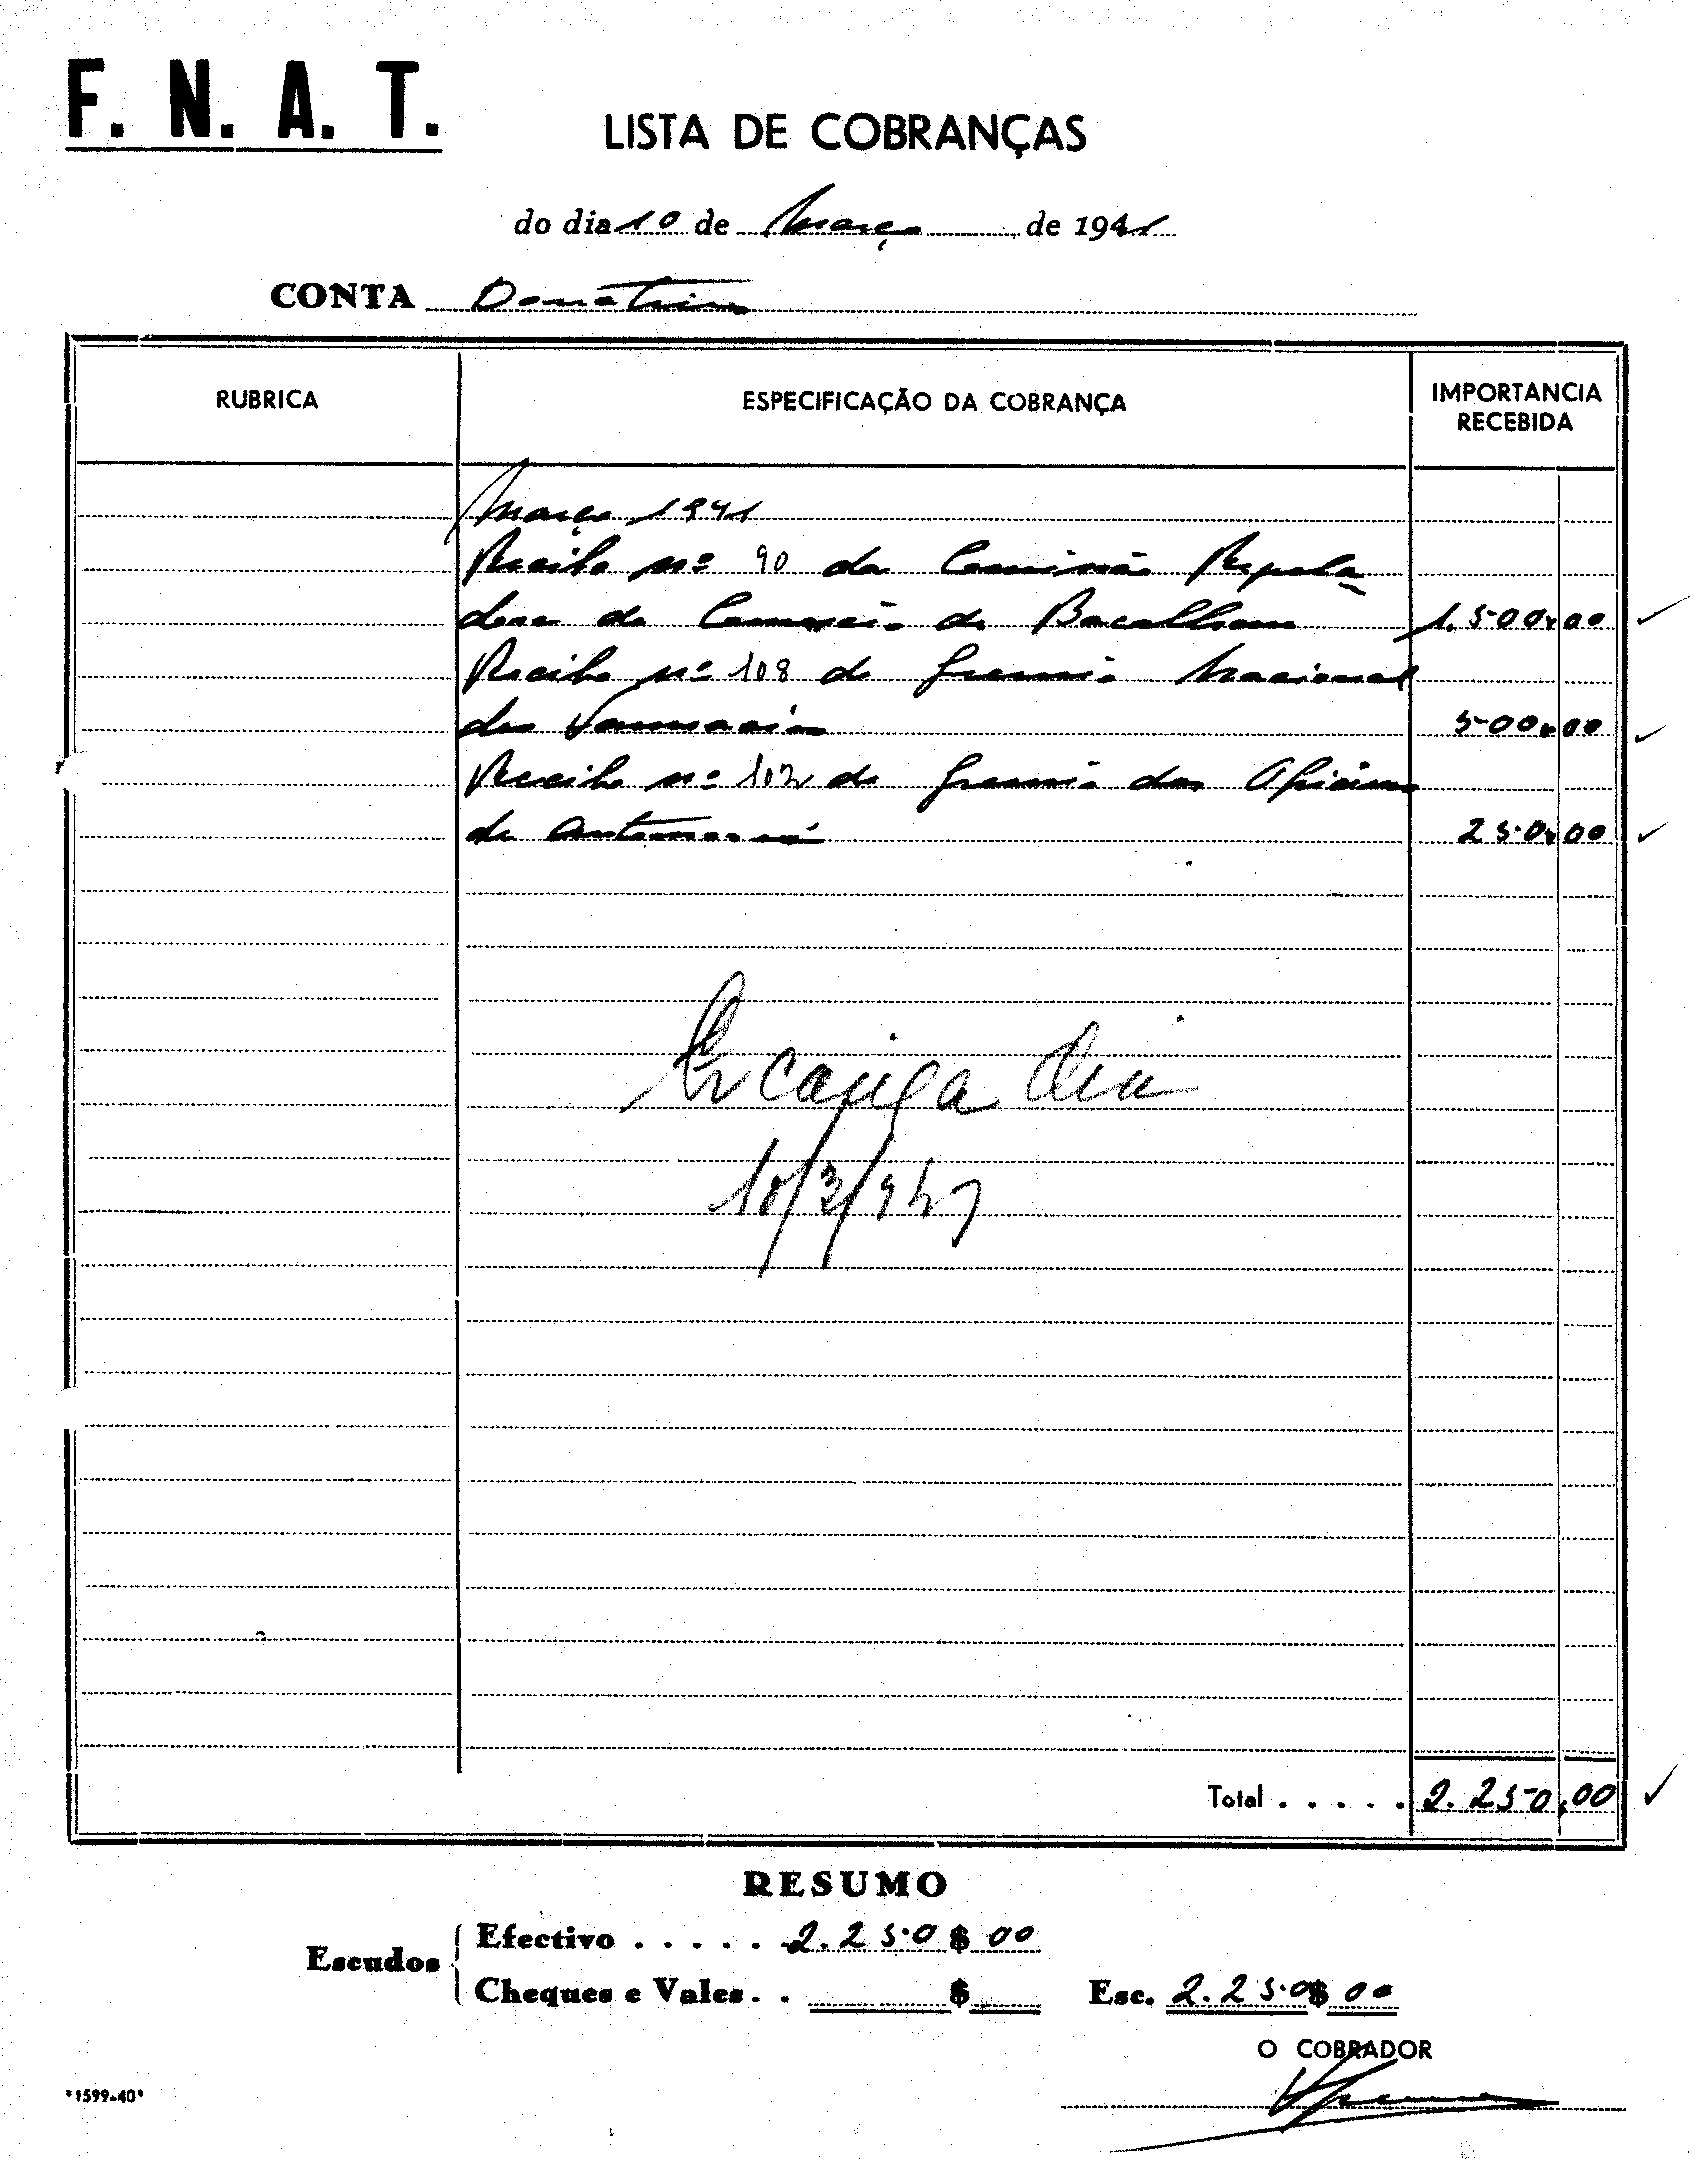 F. N. A. T.
LISTA DE COBRANÇAS
do dia 10 de Março de 1941
CONTA Donativos
RUBRICA
ESPECIFICAÇÃO DA COBRANÇA
IMPORTANCIA
RECEBIDA
Março 1941
Recibo nº 90 da Comissão Regula
dora do Comercio de Bacalhau 1.500,00
Recibo nº 108 do Gremio Nacional
das Farmacias 500,00
Recibo nº 102 do Gremio dos
de 250,00
10/3/941
Total . . . . . 2.250,00
RESUMO
Escudos
Efectivo . . . . . 2.250$00
Cheques e Vales. . $
Esc. 2.250$00
O COBRADOR
"1599-40"